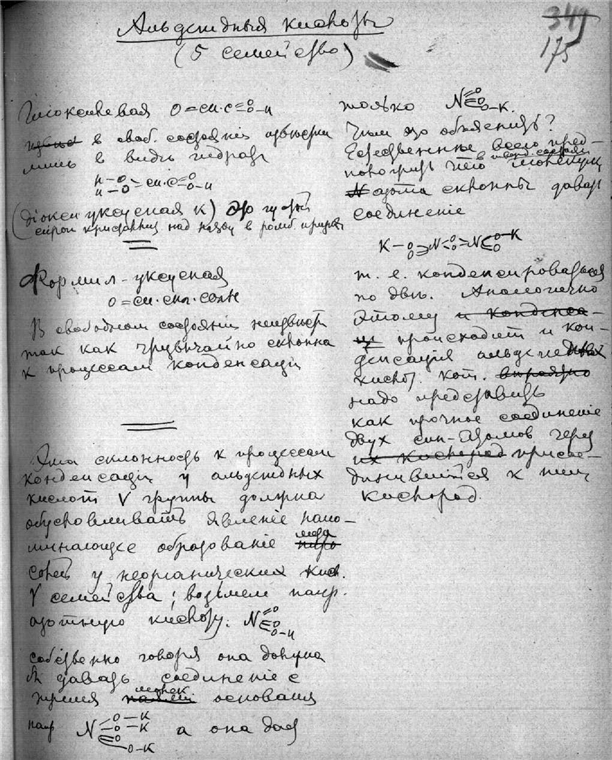 Альдегидныя кислоты
(5 семейство)
349
175
Глиоксилевая O=CH·C=O–O–H
в своб. состоянiи известна
лишь в виде гидрата
H–O–
H–O–=CH–C=O–O–H
(Дiоксиуксусная к)
сироп кристалич над в ромб. призм
Формил-уксусная
O=CH·CH2·COOH
В свободном состоянiи неизвест
так как чрезвычайно склонна
к процессам конденсацiи
Эта склонность к процессам
конденсацiи у альдегидных
кислот V группы должна
обусловливать явленiе напо-
минающее образованiе мета пиро
солей у неорганических кисл.
V семейства; возьмем напр.
азотную кислоту. N=O=O–O–H
собственно говоря она должна
б давать соединенiе с
тремя молек основания
напр N O–K O–K O–K O а она дает
только N=O=O–O–K.
Чем это объяснить?
Естественнее всего пред-
положить что в молекулы
азота склонны давать
соединенiе
K–O–O=N=O=N=O–O–K
т. е. конденсироваться
по двe. Аналогично
этому и конденса-
ця происходит и кон-
денсацiя альдегидных
кислот, кот. вероятно
надо представить
как прочное соединенiе
двух атомов через
их кислород присое-
динившiйся к ним
кислород.